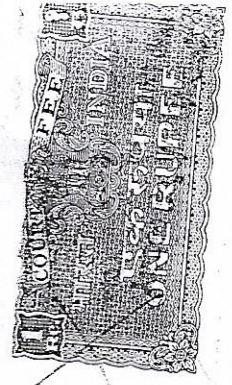 COURT FEE
भारत INDIA
एक रुपया
ONE RUPEE